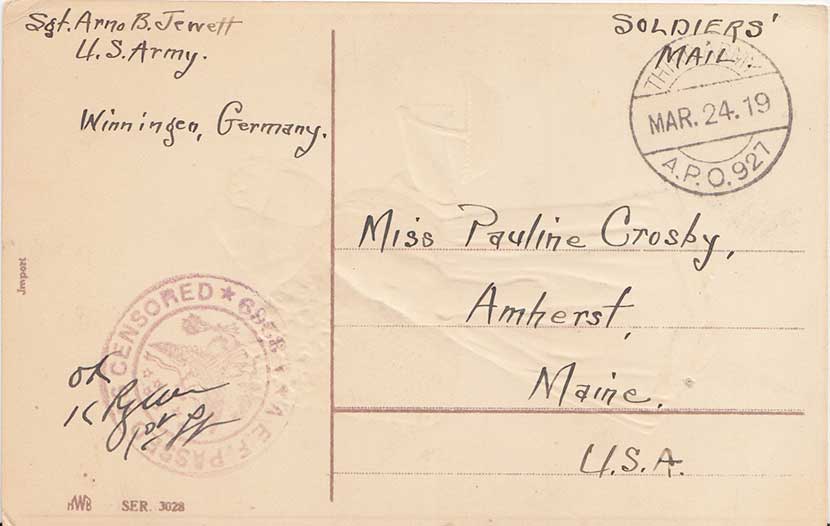 Sgt. Arno B. Jewett
U.S. Army.
Winningen, Germany.
SOLDIERS'
MAIL.
MAR. 24. 19
A.P.O. 927
Miss Pauline Crosby,
Amherst,
Maine.
U.S.A.
Import
CENSORED ★
A.E.F. PASSED
OK
1st Lt
HWB SER. 3028